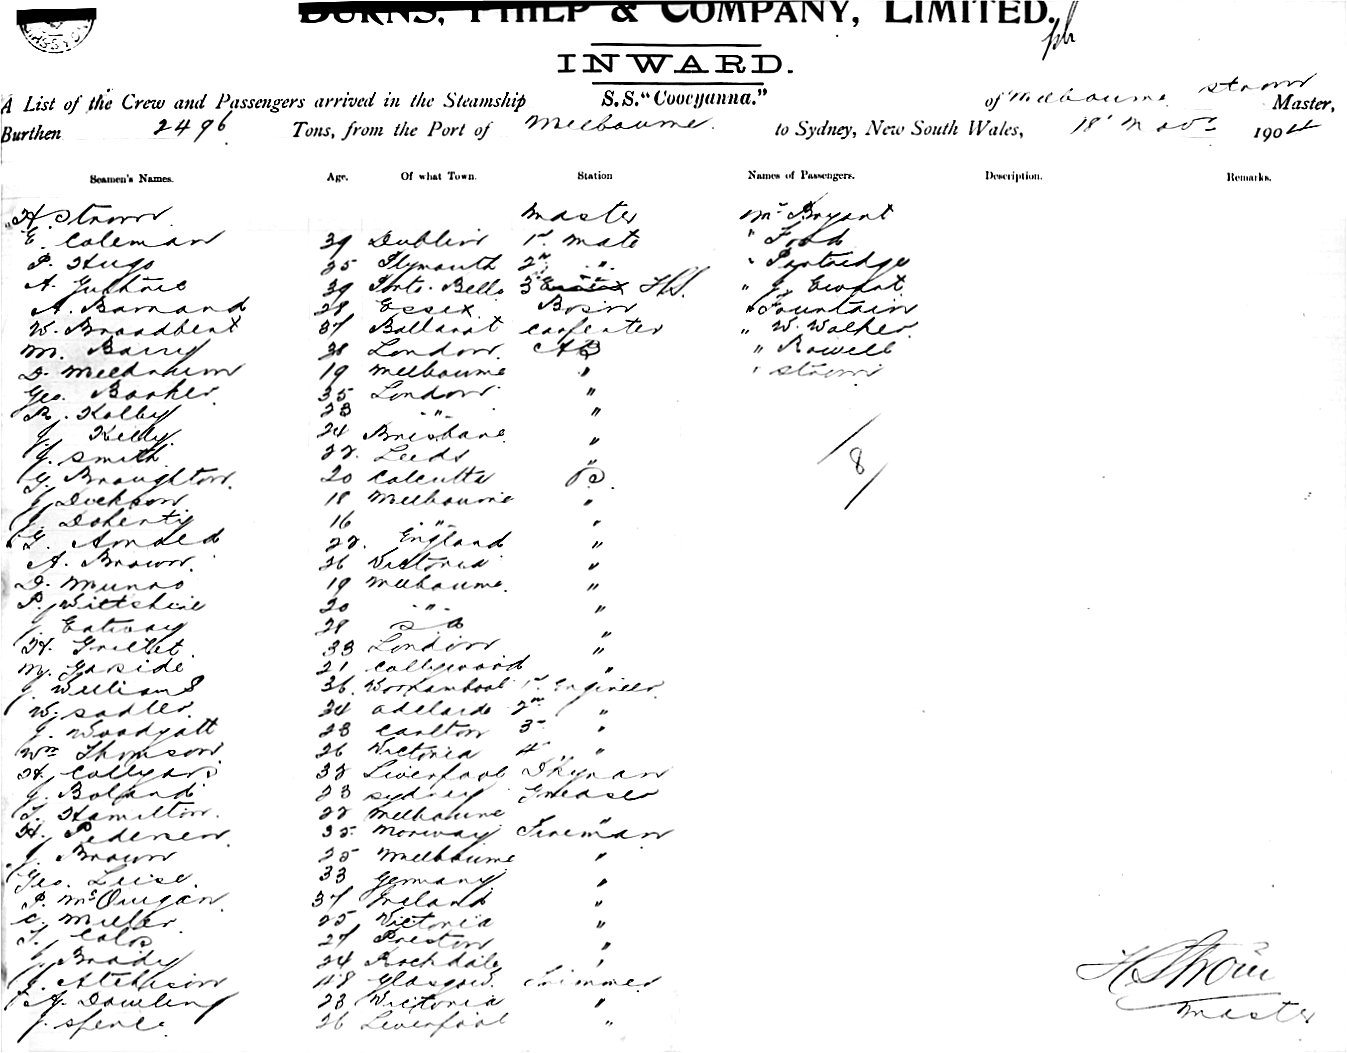 BURNS, PHILP & COMPANY, LIMITED.
INWARD.
A List of the Crew and Passengers arrived in the Steamship S.S. "Cooeyanna." of Melbourne Master,
Burthen 2496 Tons, from the Port of Melbourne. to Sydney, New South Wales, 18 Novr 190
Seamen's Names. Age. Of what Town. Station Names of Passengers. Description. Remarks.
H. Master Mr Bryant
E. Coleman 39 Dublin 1st Mate " Foord
P. Hugo 35 Plymouth 2nd " " Partridge
A. Guthrie 39 Porto Bello 3 " J. Ewart
A. Barnard 28 Essex Bosn " Fountain
W. Broadbent 37 Ballarat Carpenter " W. Walker
M. Barry 38 London AB " Rowell
D. 19 Melbourne "
Geo. Barker 35 London "
R. Kolby 23 " "
J. Kelly 24 Brisbane "
J. Smith 22 Leeds "
G. Broughton 20 Calcutta
J. Dickson 18 Melbourne "
J. Doherty 16 " "
G. Arnold 22 England "
A. Brown 26 Victoria "
D. Munro 19 Melbourne "
P. Wiltshire 20 " "
J. 28 "
H. 33 London "
M. Garside 21 Collingwood "
J. Williams 36 Warrnambool 1st Engineer
W. Sadler 34 Adelaide 2nd "
J. Woodgatt 23 Carlton 3rd "
Wm Thomson 26 Victoria 4 "
H. 32 Liverpool Dkyman
J. Boland 23 Sydney Greaser
T. Hamilton 22 Melbourne "
H. Pedersen 32 Norway Fireman
J. Brown 25 Melbourne "
Geo. 33 Germany "
P. McGuigan 37 Ireland "
C. Miller 25 Victoria "
T. 27 Preston "
J. Brady 24 Rochdale "
J. Atchison Glasgow Trimmer
A. J. Dowling 23 Victoria "
J. Spence 26 Liverpool "
/8/
Master